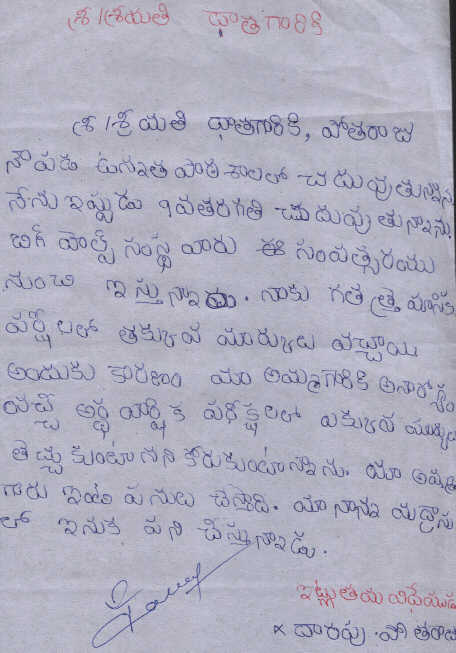 శ్రీ/శ్రీమతి దాతగారికి
శ్రీ/శ్రీమతి దాతగారికి, పోతరాజు
నాపేరు ఉన్నత పాఠశాలలో చదువుతున్నాను
నేను ఇప్పుడు 9వతరగతి చదువుతున్నాను.
బిగ్ హెల్ప్ సంస్థ వారు ఈ సంవత్సరము
నుంచి ఇస్తున్నారు. నాకు గత త్రైమాసిక
పరీక్షలలో తక్కువ మార్కులు వచ్చాయి
అందుకు కారణం మా అమ్మగారికి అనారోగ్యం
వచ్చి అర్ధ వార్షిక పరీక్షలలో ఎక్కువ మార్కులు
తెచ్చుకుంటానని కోరుకుంటున్నాను. మా అమ్మ
గారు ఇంటి పనులు చేస్తాది. మా నాన్న మద్రాసు
లో ఇనుక పని చేస్తున్నాడు.
ఇట్లు తమ విధేయుడు
x దారపు. పోతరాజు